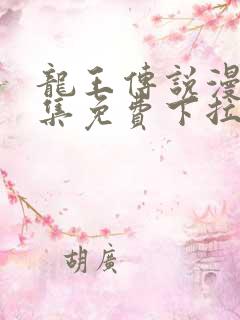 龍王傳說漫
集免費下拉
胡廣